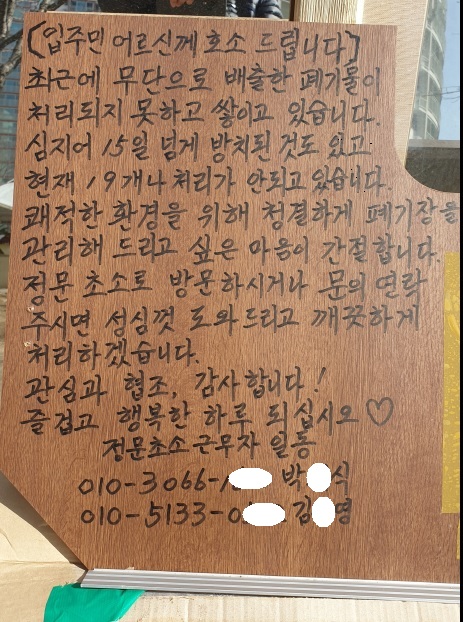 [입주민 어르신께 호소 드립니다]
최근에 무단으로 배출한 폐기물이
처리되지 못하고 쌓이고 있습니다.
심지어 15일 넘게 방치된 것도 있고
현재 19개나 처리가 안되고 있습니다.
쾌적한 환경을 위해 청결하게 폐기장을
관리해 드리고 싶은 마음이 간절합니다.
정문 초소로 방문하시거나 문의 연락
주시면 성심껏 도와드리고 깨끗하게
처리하겠습니다.
관심과 협조, 감사합니다!
즐겁고 행복한 하루 되십시오♡
정문초소 근무자 일동
010-3066- 박 식
010-5133-0 김 영